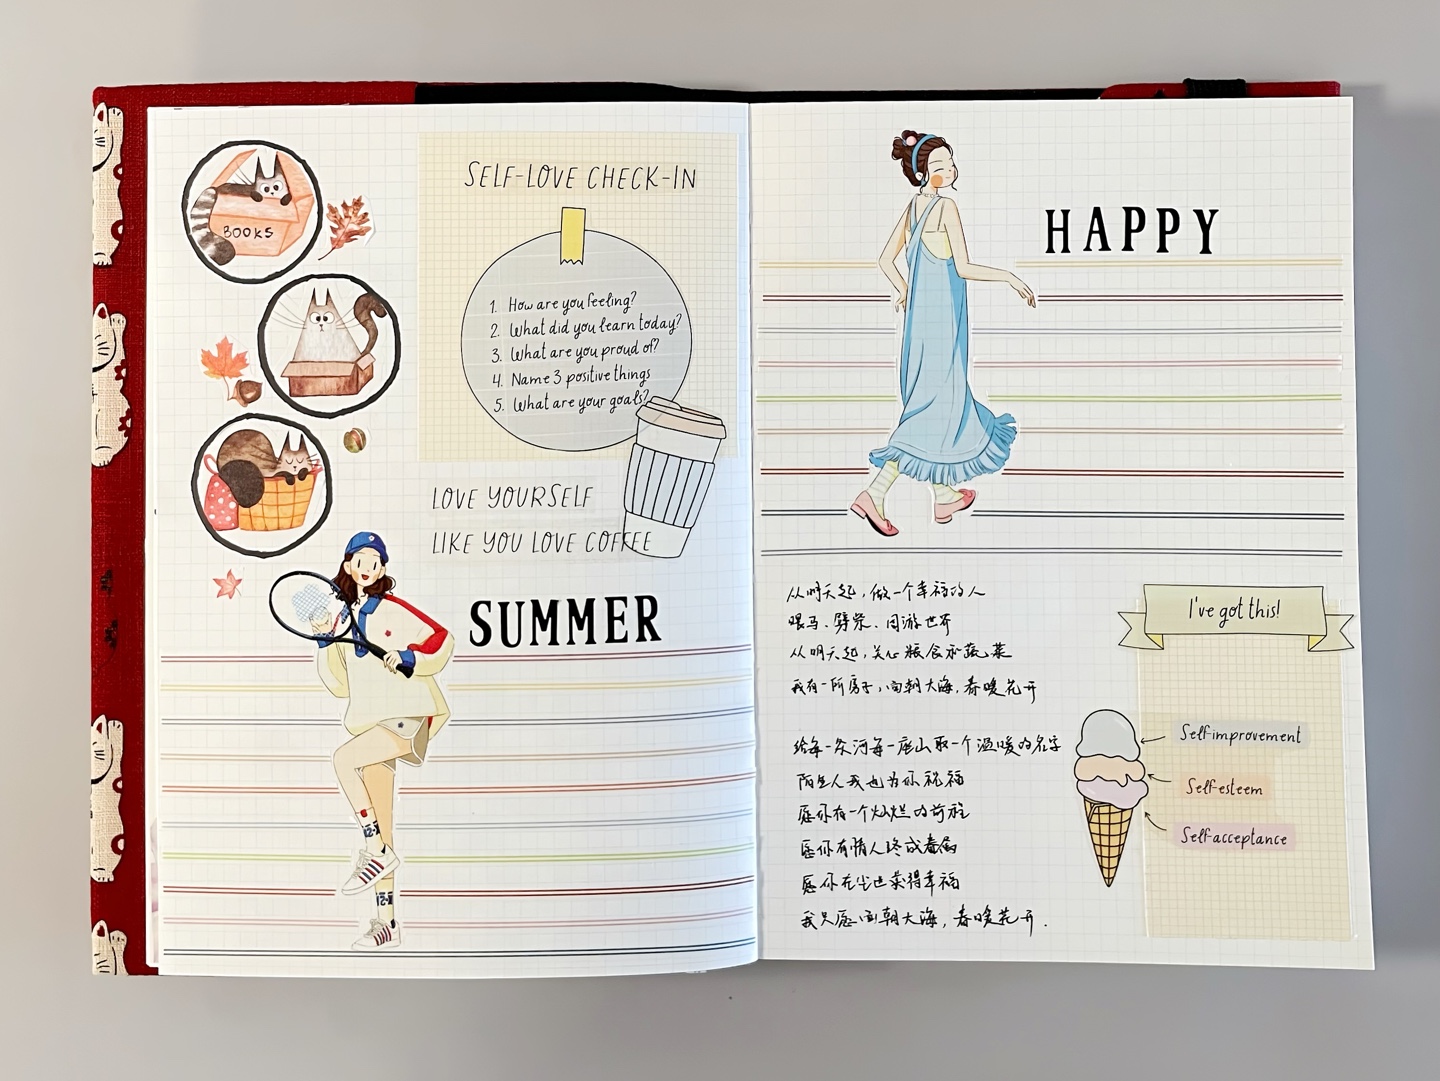 BOOKS
SELF-LOVE CHECK-IN
1. How are you feeling?
2. What did you learn today?
3. What are you proud of?
4. Name 3 positive things
5. What are your goals?
LOVE YOURSELF
LIKE YOU LOVE COFFEE
SUMMER
HAPPY
从明天起，做一个幸福的人
喂马、劈柴、周游世界
从明天起，关心粮食和蔬菜
我有一所房子，面朝大海，春暖花开
给每一条河每一座山取一个温暖的名字
陌生人我也为你祝福
愿你有一个灿烂的前程
愿你有情人终成眷属
愿你在尘世获得幸福
我只愿面朝大海，春暖花开.
I've got this!
Self-improvement
Self-esteem
Self-acceptance